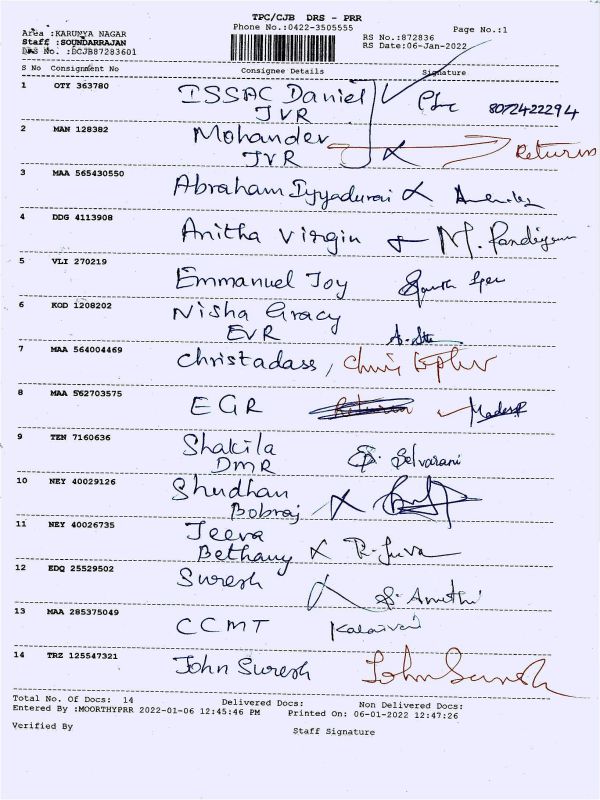 TPC/CJB DRS - PRR
Phone No.:0422-3505555
Page No.:1
Area :KARUNYA NAGAR
Staff :SOUNDARRAJAN
DRS No. :DCJB87283601
RS No.:872836
RS Date:06-Jan-2022
S No Consignment No Consignee Details Signature
1 OTY 363780 ISSAC Daniel 8072422294
JVR
2 MAN 128382 Mohander
JVR Return
3 MAA 565430550 Abraham Iyyadurai
4 DDG 4113908 Anitha Virgin M. Pandiyan
5 VLI 270219 Emmanuel Joy
6 KOD 1208202 Nisha Gracy
EVR
7 MAA 564004469 Christadass,
8 MAA 562703575 EGR
9 TEN 7160636 Shakila Selvarani
DMR
10 NEY 40029126 Shudhan
Bobraj
11 NEY 40026735 Jeeva
Bethany
12 EDQ 25529502 Suresh
13 MAA 285375049 CCMT Kalaivani
14 TRZ 125547321 John Suresh John Suresh
Total No. Of Docs: 14 Delivered Docs: Non Delivered Docs:
Entered By :MOORTHYPRR 2022-01-06 12:45:46 PM Printed On: 06-01-2022 12:47:26
Verified By Staff Signature